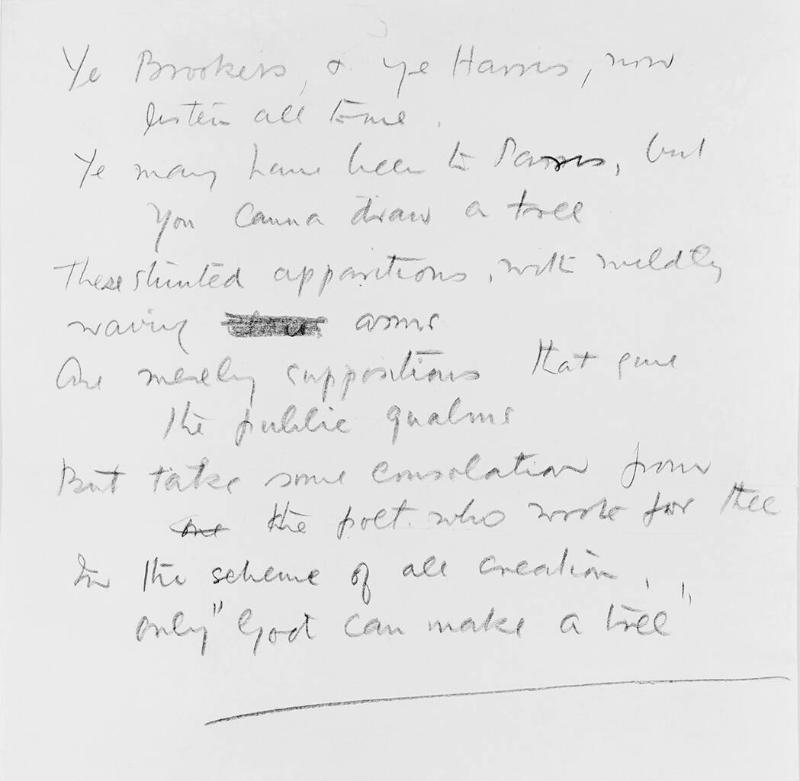 Ye Brookers, & ye Harris, now
listen all to me.
Ye may have been to Parris, but
you canna draw a tree
These stunted apparitions, with wildly
waving arms
Are merely suppositions that give
the public qualms
But take some consolation from
one the poet who wrote for thee
In the scheme of all creation,
only "God can make a tree"